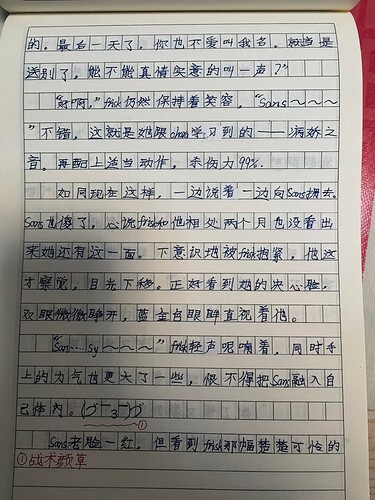 的，最后一天了，你也不爱叫我名。就当是
送别了，能不能真情实意的叫一声？"
"好啊，"frisk仍然保持着笑容，"Sans～～～
"不错，这就是她跟chara学习到的——病娇之
音。再配上适当动作，杀伤力99%.
如同现在这样，一边说着一边向Sans拥去。
Sans也傻了，心说frisk和他相处两个月也没看出
来她还有这一面。下意识地被frisk抱紧，他这
才察觉，目光下移。正好看到她的夹心脸，
双眼微微睁开，蓝金色眼眸直视着他。
"San……sy～～～"frisk轻声呢喃着，同时手
上的力气也更大了一些，恨不得把Sans融入自
己体内。(づ￣3￣)づ
①
Sans老脸一红，但看到frisk那幅楚楚可怜的
①战术颜草